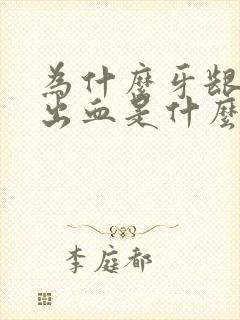 為什麼牙龈
出血是什麼
李庭都